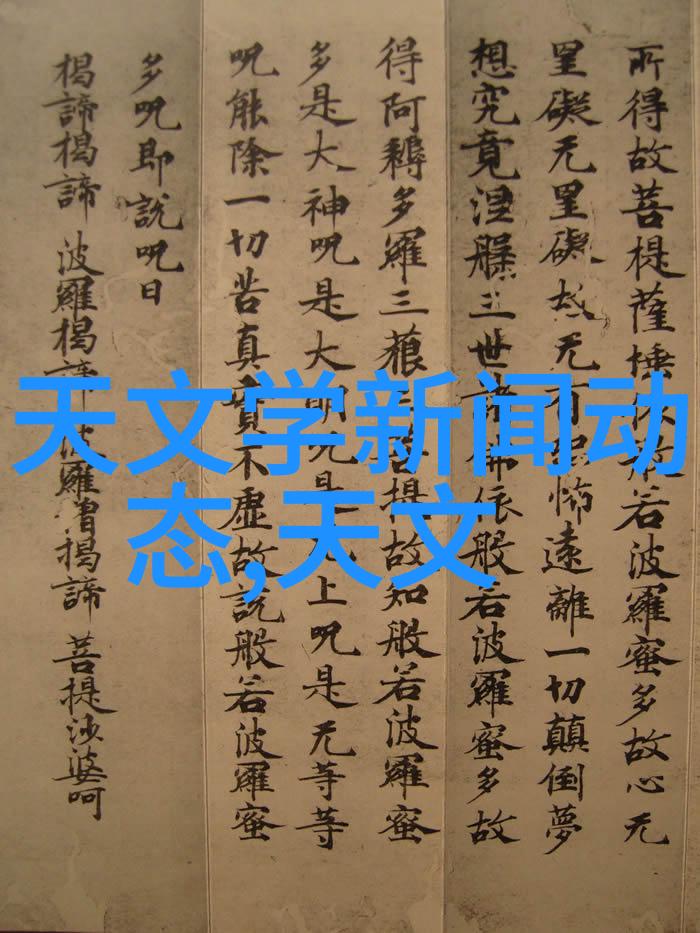 所得故菩提薩埵依般若波羅蜜多故心无
罣礙无罣礙故无有恐怖遠離一切顛倒夢
想究竟涅槃三世諸佛依般若波羅蜜多故
得阿耨多羅三藐三菩提故知般若波羅蜜
多是大神呪是大明呪是无上呪是无等等
呪能除一切苦真實不虛故說般若波羅蜜
多呪即說呪曰
揭諦揭諦 波羅揭諦 波羅僧揭諦 菩提沙婆呵
天文学新闻动
态,天文